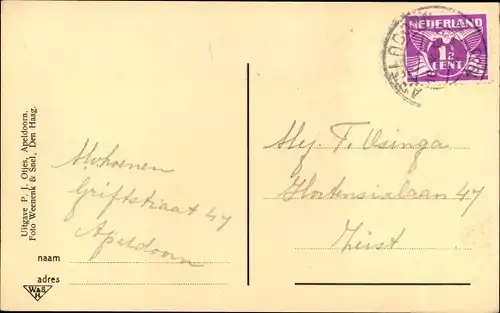 Uitgave P. J. Otjes, Apeldoorn.
Foto Weenenk & Snel, Den Haag.
Griftstraat 47
Apeldoorn
naam
adres
W&S
H
NEDERLAND
1½
CENT
APELDOO
Mej. T. Osinga
Hortensialaan 47
Zeist